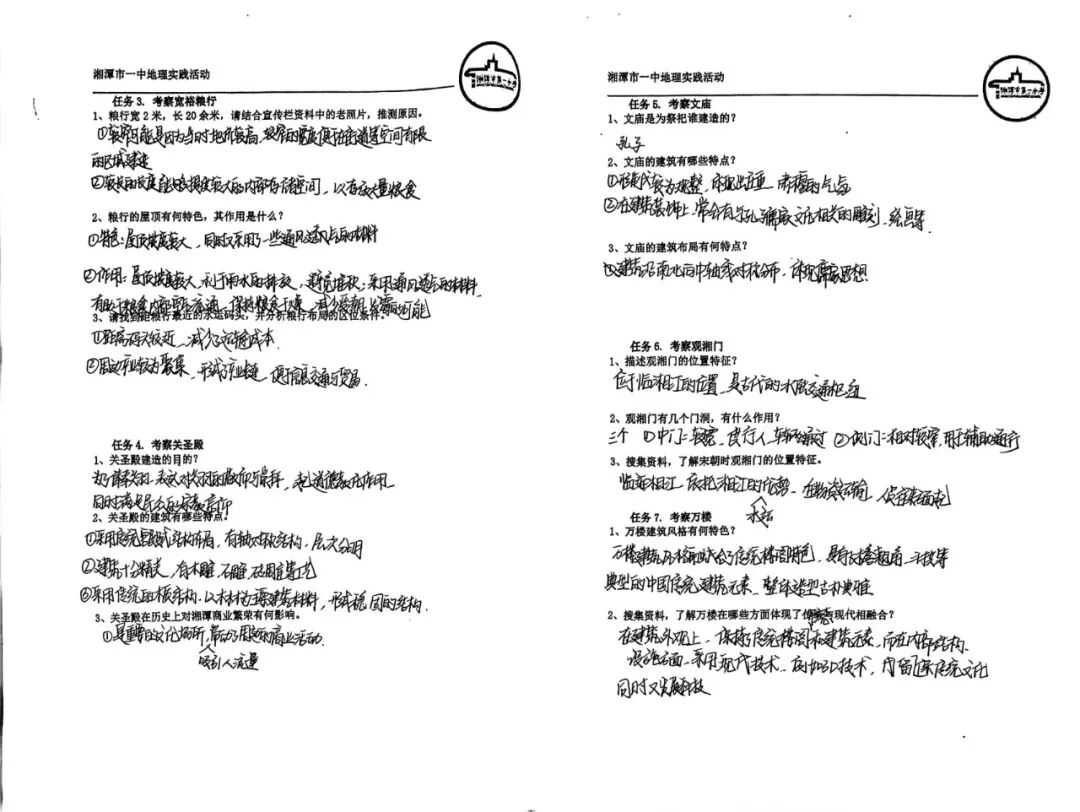 湘潭市一中地理实践活动
湘潭市第一中学
任务3. 考察宽裕粮行
1、粮行宽2米，长20余米，请结合宣传栏资料中的老照片，推测原因。
①较窄可能是因为当时地价较高，较窄的宽度便于在街道等空间有限
的区域建造
②较长的长度能够提供较大的内部存储空间，以存放大量粮食
2、粮行的屋顶有何特色，其作用是什么？
①特色：屋顶坡度较大，同时又采用了一些通风透气的材料
②作用：屋顶坡度较大，利于雨水的排放，避免堆积；采用通风透气的材料
有助于粮食内部空气流通，保持粮食干燥，减少受潮、发霉的可能
3、请找到距粮行最近的水运码头，并分析粮行布局的区位条件。
①距离码头较近，减少运输成本
②周边产业较为聚集，形成产业链，便于信息交通与贸易
任务4. 考察关圣殿
1、关圣殿建造的目的？
为了祭祀关羽，表达对关羽的敬仰与崇拜，起道德教化作用
同时满足民众的宗教信仰
2、关圣殿的建筑有哪些特点。
①采用传统宫殿式结构布局，有轴对称结构，层次分明
②建筑十分精美，有木雕、石雕、砖雕等工艺
③采用传统的木质结构，以木材为主要建筑材料，形成稳固的结构。
3、关圣殿在历史上对湘潭商业繁荣有何影响。
①是重要的文化场所，带动周边的商业活动。
吸引人流量
湘潭市一中地理实践活动
湘潭市第一中学
任务5. 考察文庙
1、文庙是为祭祀谁建造的？
孔子
2、文庙的建筑有哪些特点？
①形制较为规整，体现出庄重、肃穆的气氛
②在建筑装饰上，常会有与孔子儒家文化相关的雕刻、绘画等
3、文庙的建筑布局有何特点？
①建筑沿南北向中轴线对称分布，体现儒家思想
任务6. 考察观湘门
1、描述观湘门的位置特征？
位于临湘江的位置，是古代的水陆交通枢纽
2、观湘门有几个门洞，有什么作用？
三个 ①中门：较宽，供行人、车辆通过 ②侧门：相对较窄，用于辅助通行
3、搜集资料，了解宋朝时观湘门的位置特征。
临近湘江，依托湘江的优势，物资运输，人员往来频繁
水运
任务7. 考察万楼
1、万楼建筑风格有何特色？
万楼建筑风格融合了传统楼阁特色，具有飞檐翘角、斗拱等
典型的中国传统建筑元素，整体造型古朴典雅
2、搜集资料，了解万楼在哪些方面体现了传统与现代相融合？
在建筑外观上，保持传统楼阁和建筑元素，而在内部结构、
设施方面，采用现代技术，例如3D技术，保留传统文化
同时又发展科技